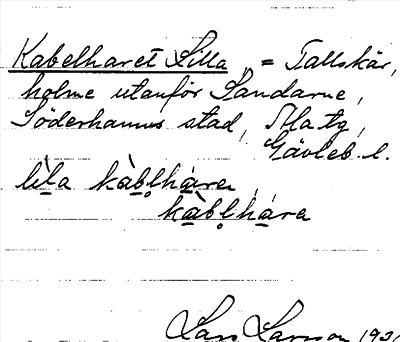 Kabelharet Lilla, = Tallskär,
holme utanför Sandarne,
Söderhamns stad,
Gävleb. l.
lìla kàbḷhára,
kàbḷhára
Lars Larsson 193